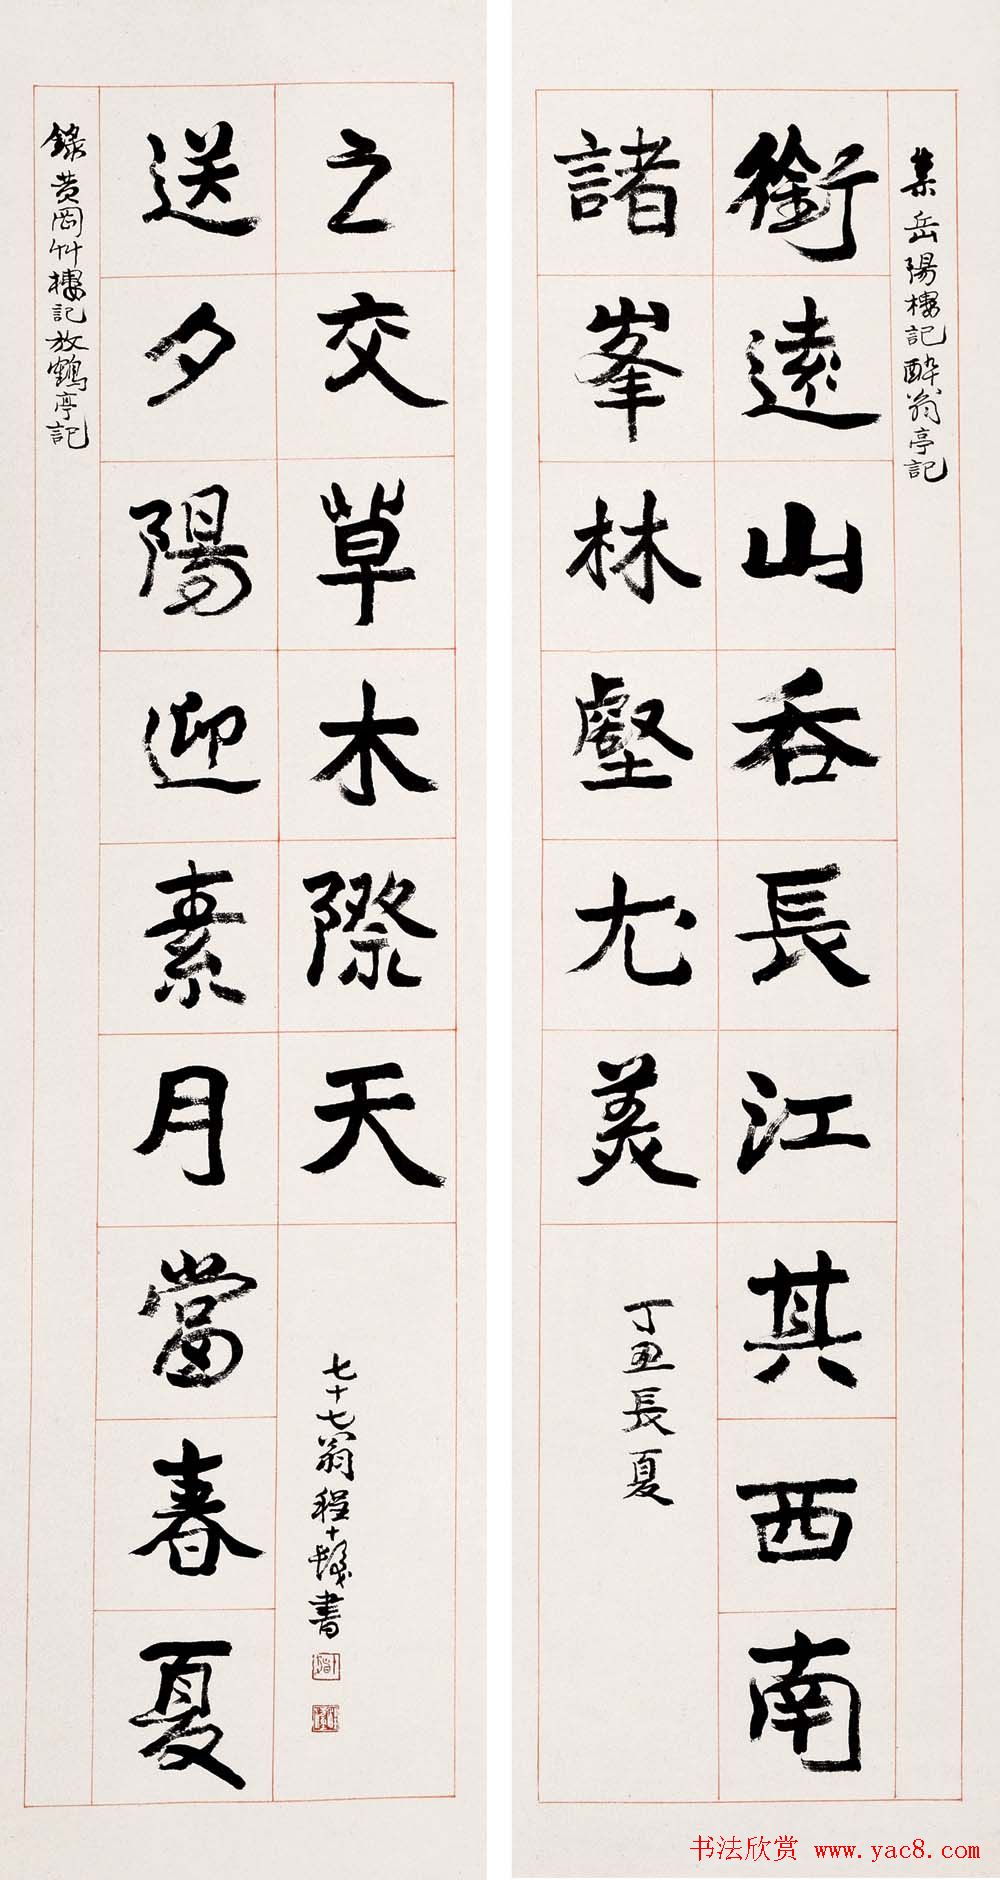 集岳陽樓記醉翁亭記
銜遠山吞長江其西南
諸峯林壑尤美
丁丑長夏
送夕陽迎素月當春夏
之交草木際天
錄黄岡竹樓記放鶴亭記
七十七翁程十髮書
书法欣赏 www.yac8.com